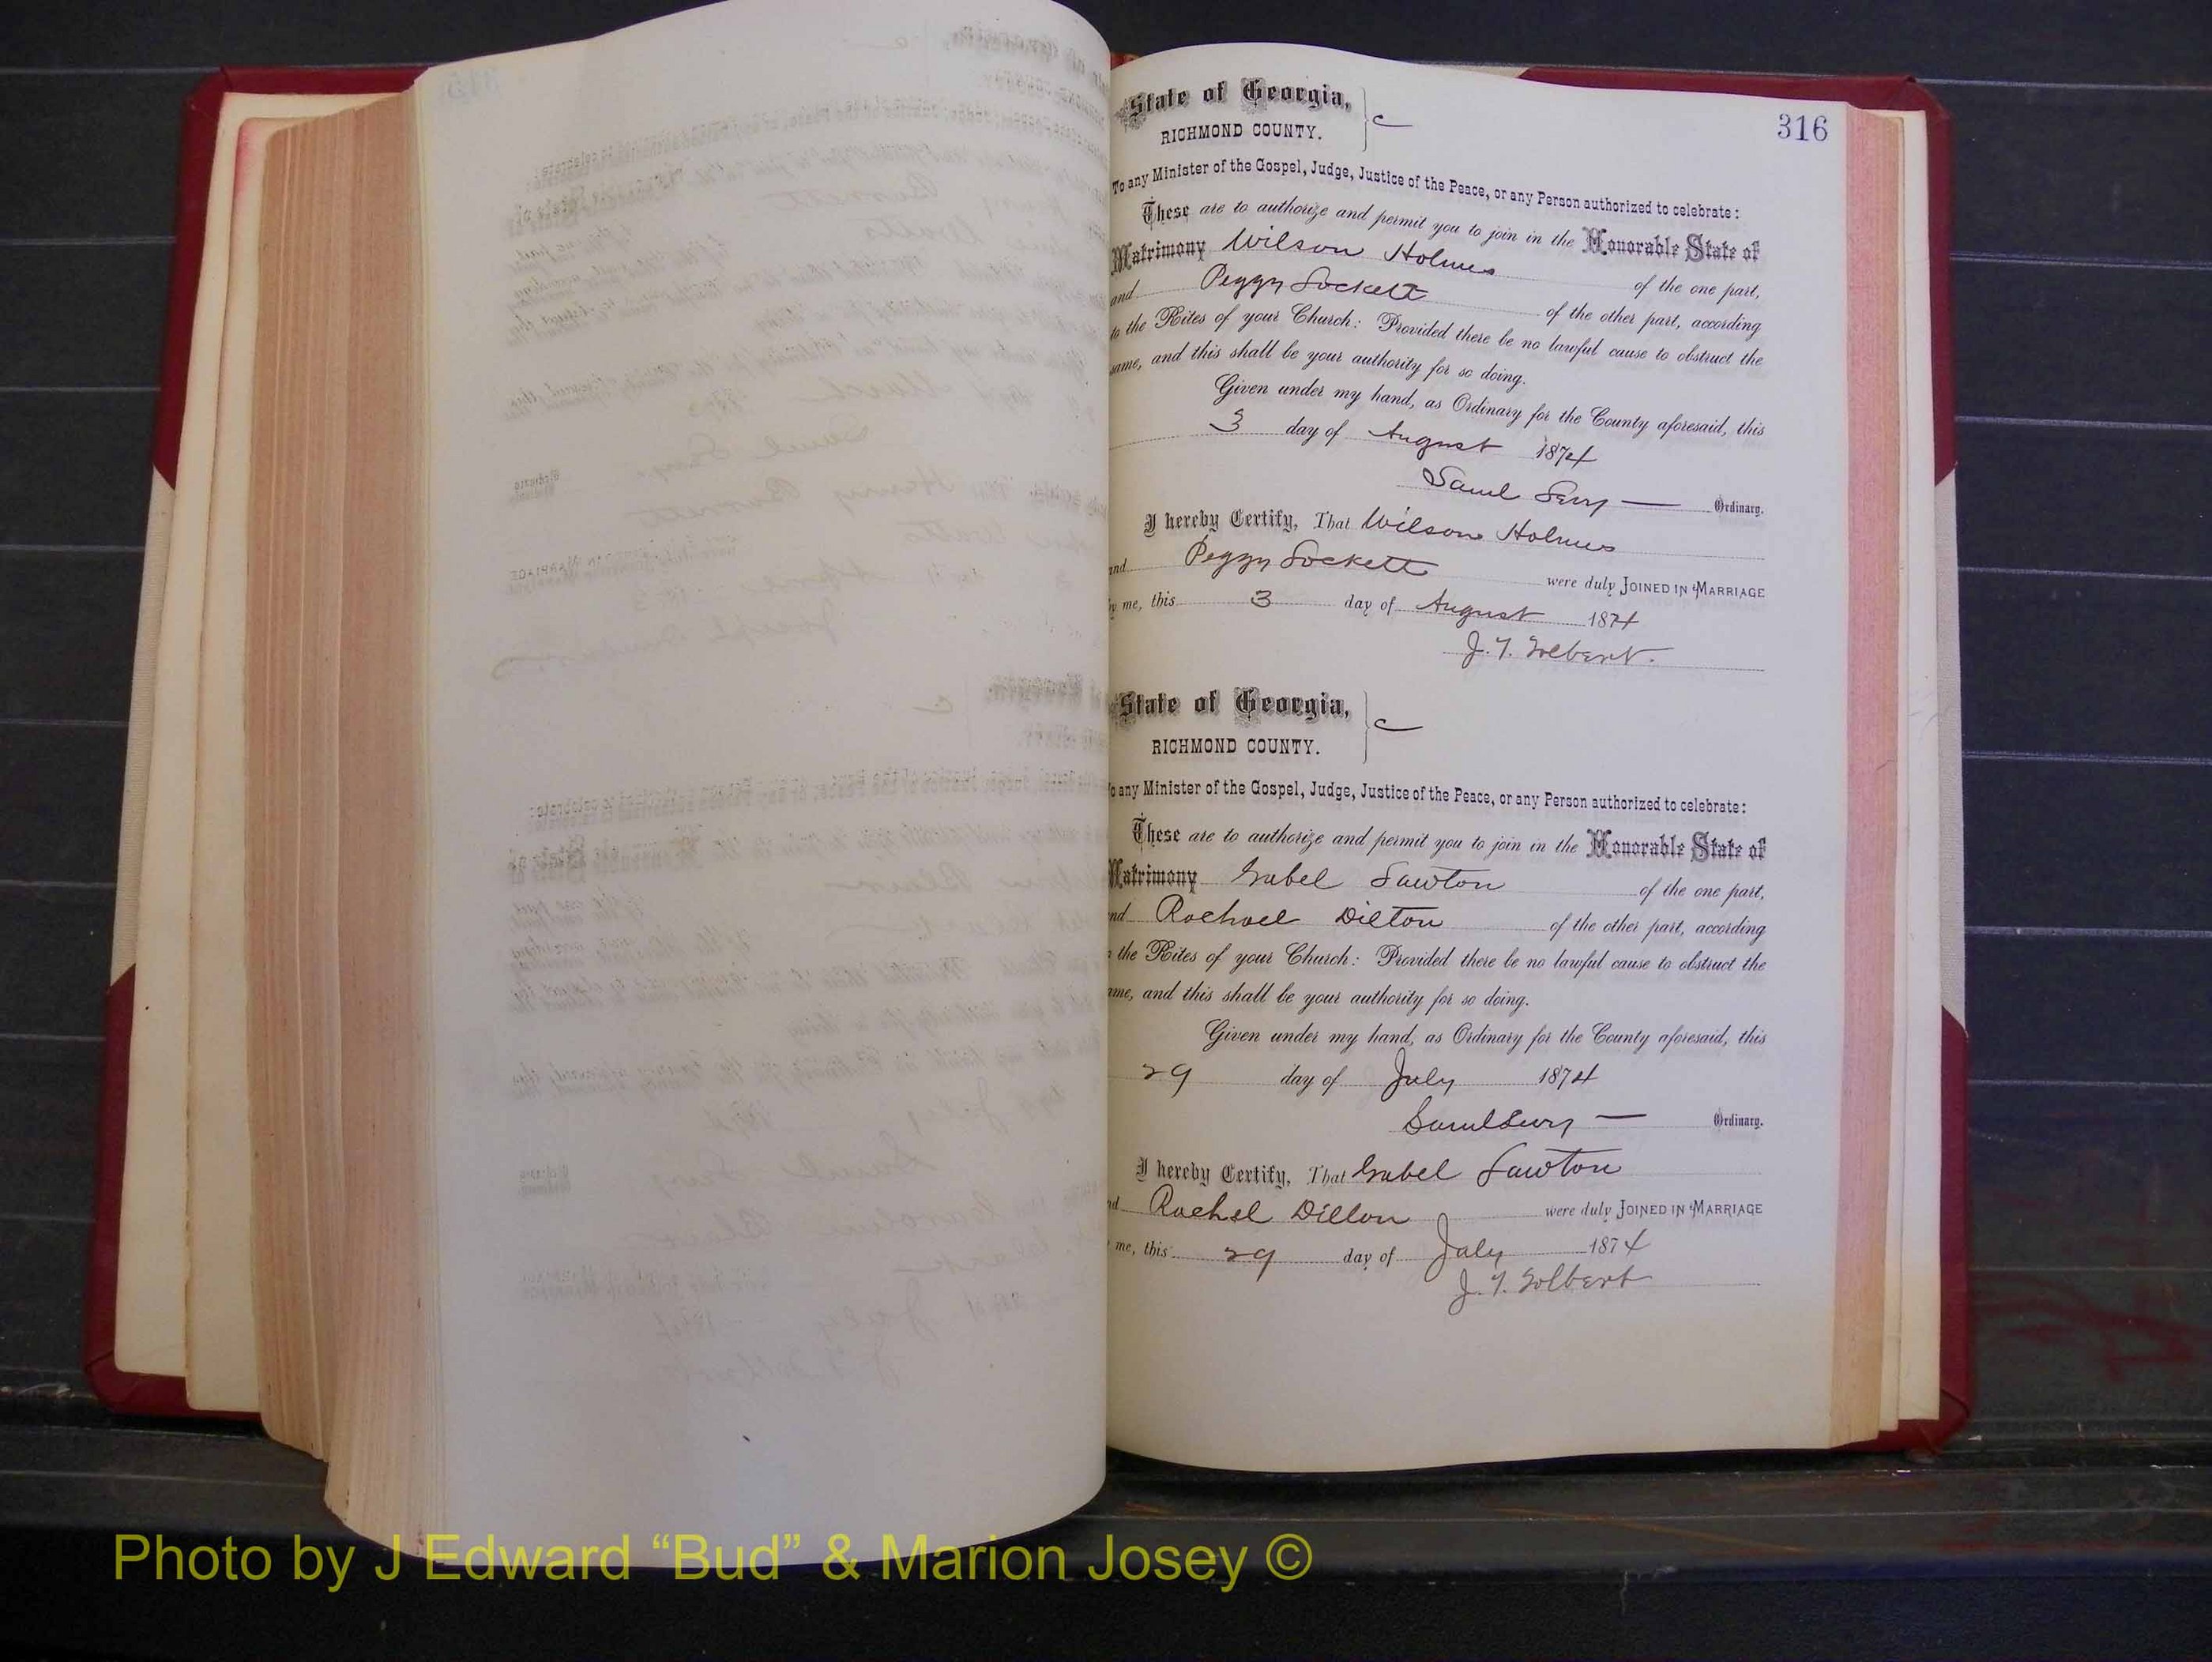 316
State of Georgia,
RICHMOND COUNTY.
To any Minister of the Gospel, Judge, Justice of the Peace, or any Person authorized to celebrate:
These are to authorize and permit you to join in the Honorable State of
Matrimony Wilson Holmes of the one part,
and Peggy Lockett of the other part, according
to the Rites of your Church: Provided there be no lawful cause to obstruct the
same, and this shall be your authority for so doing.
Given under my hand, as Ordinary for the County aforesaid, this
3 day of August 1874
Saml Levy — Ordinary.
I hereby Certify, That Wilson Holmes
and Peggy Lockett were duly JOINED IN MARRIAGE
by me, this 3 day of August 1874
J. T. Tolbert.
State of Georgia,
RICHMOND COUNTY.
To any Minister of the Gospel, Judge, Justice of the Peace, or any Person authorized to celebrate:
These are to authorize and permit you to join in the Honorable State of
Matrimony Lawton of the one part,
and Rachael Dillon of the other part, according
the Rites of your Church: Provided there be no lawful cause to obstruct the
ame, and this shall be your authority for so doing.
Given under my hand, as Ordinary for the County aforesaid, this
29 day of July 1874
Saml Levy — Ordinary.
I hereby Certify, That Lawton
nd Rachel Dillon were duly JOINED IN MARRIAGE
me, this 29 day of July 1874
J. T. Tolbert
Photo by J Edward “Bud” & Marion Josey ©